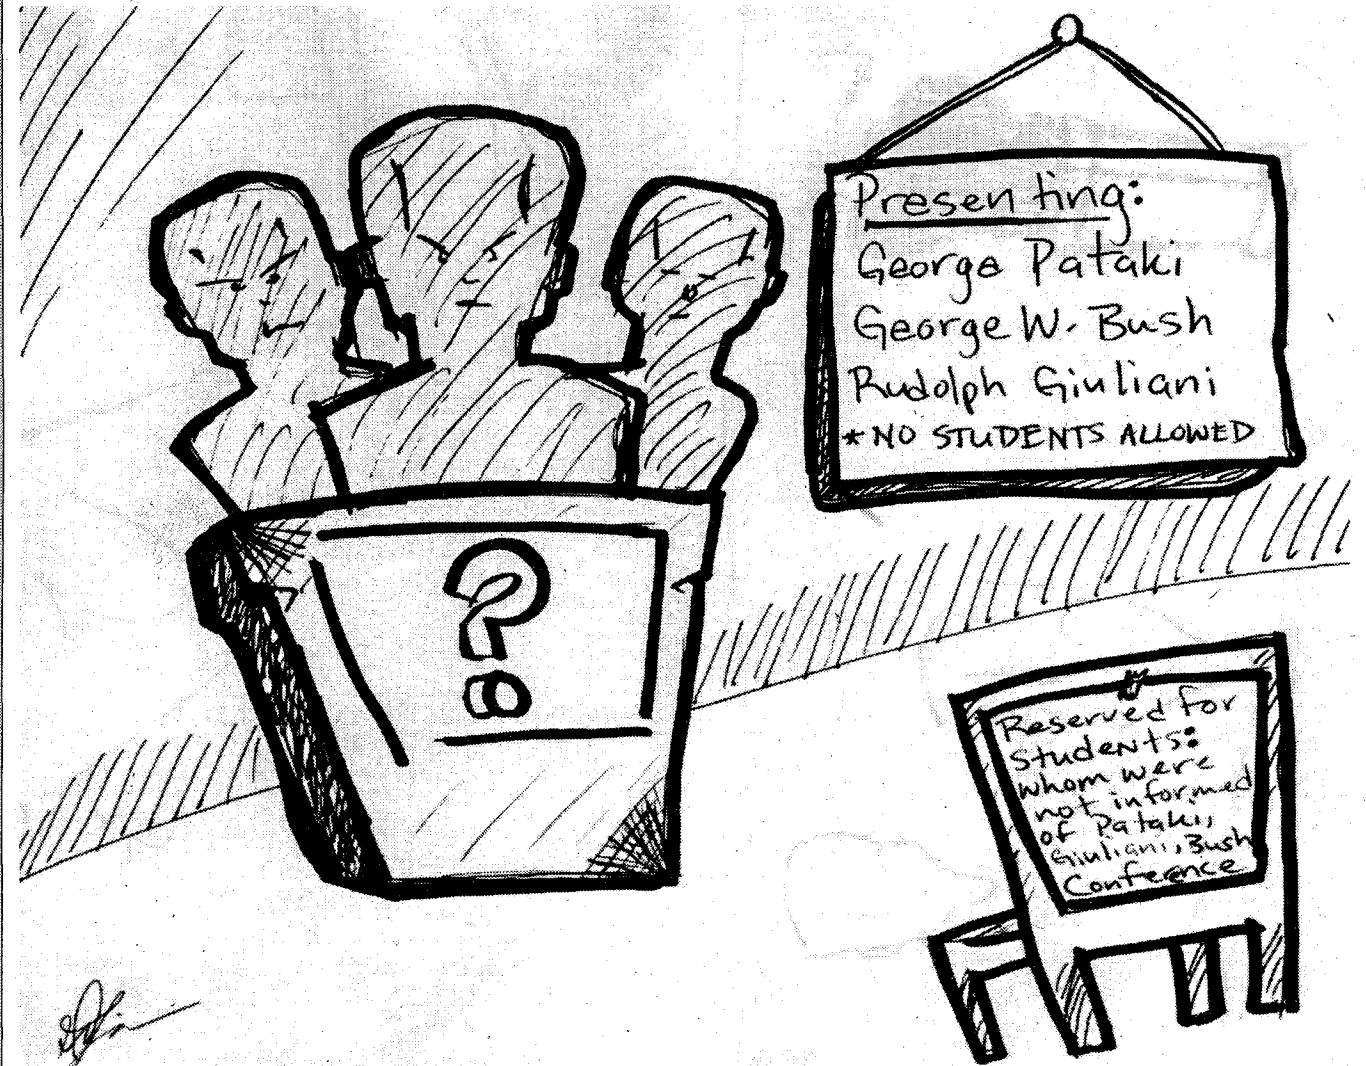 Presenting:
George Pataki
George W. Bush
Rudolph Giuliani
*NO STUDENTS ALLOWED
?
Reserved for
Students:
whom were
not informed
of Pataki,
Giuliani, Bush
Conference